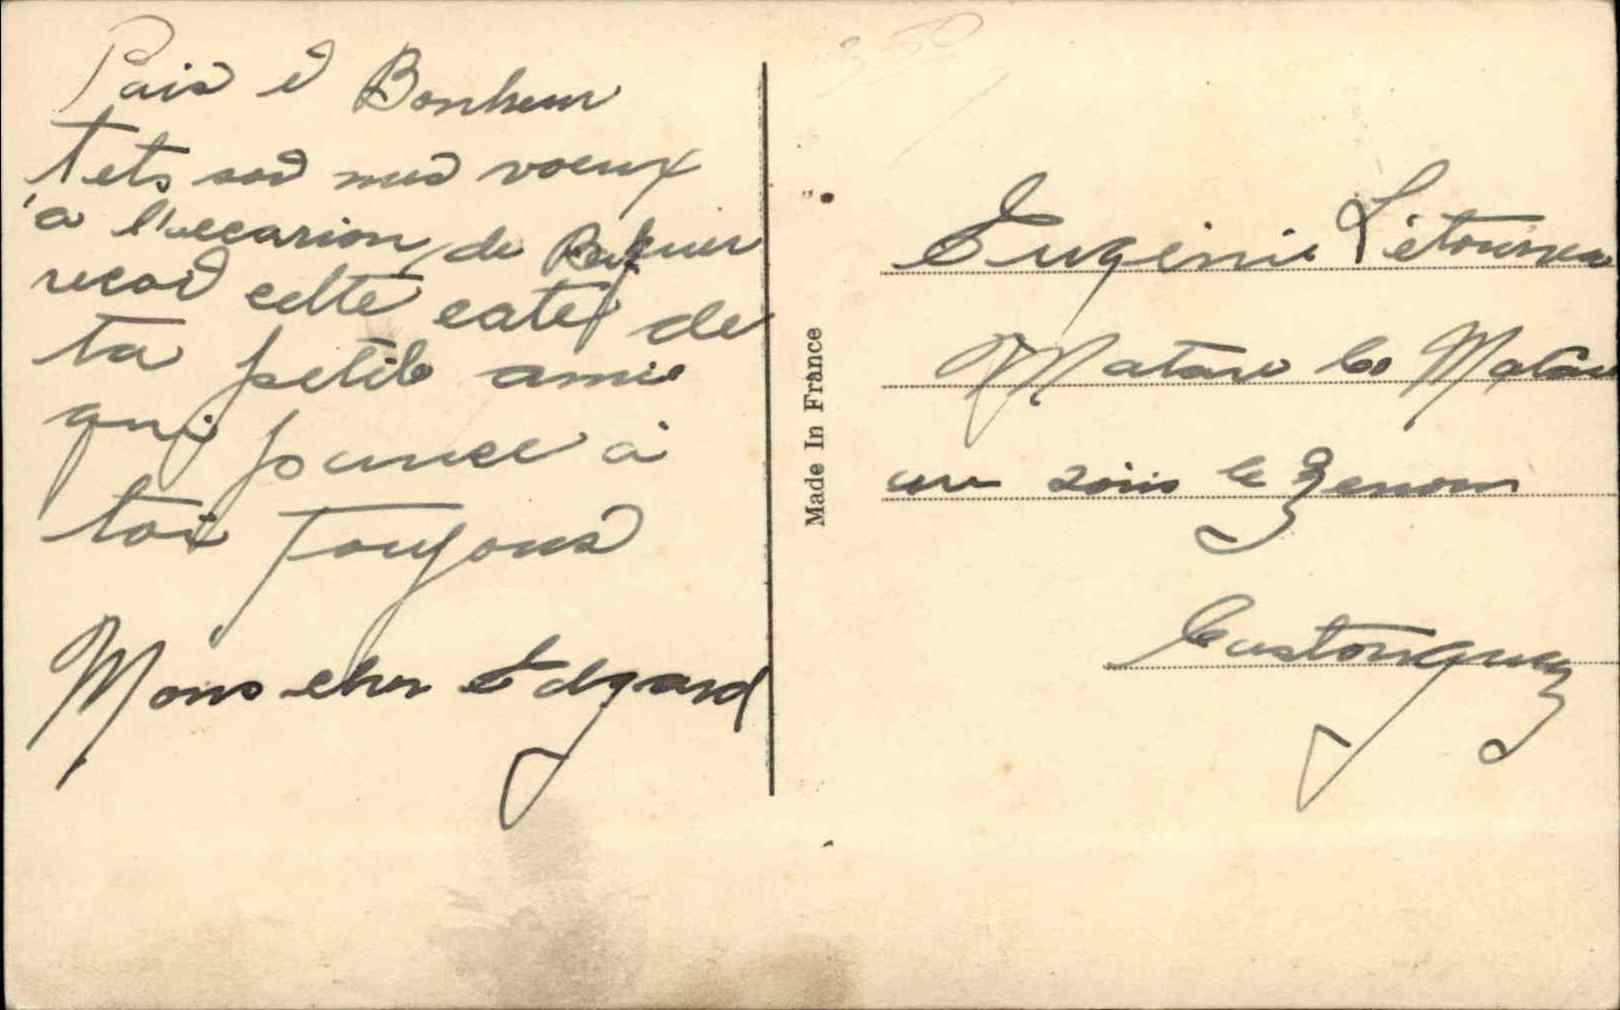 Paid é Bonheur
tets sod mes voeux
a l'occasion de
recod cette cate de
ta petite amie
qui pance a
toi Toujoud
Mons cher Edgard
Made In France
Eugénie Létourneau
Matane Co Matane
sois le Zenon
Castonguay